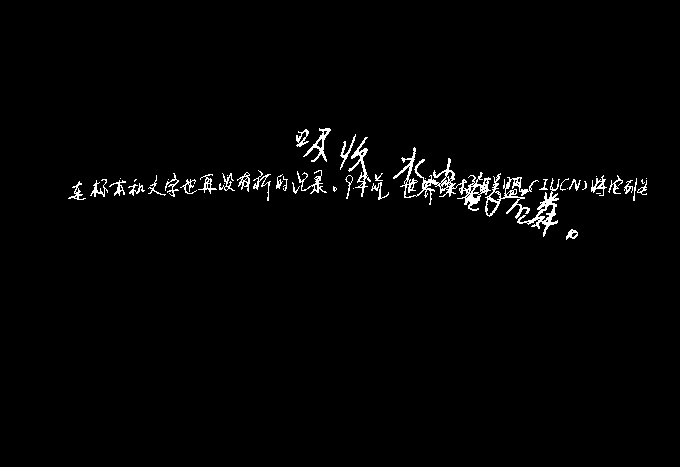 吸收水中的
连标本和文字也再没有新的记录。9年前世界保护联盟(IUCN)将它列为